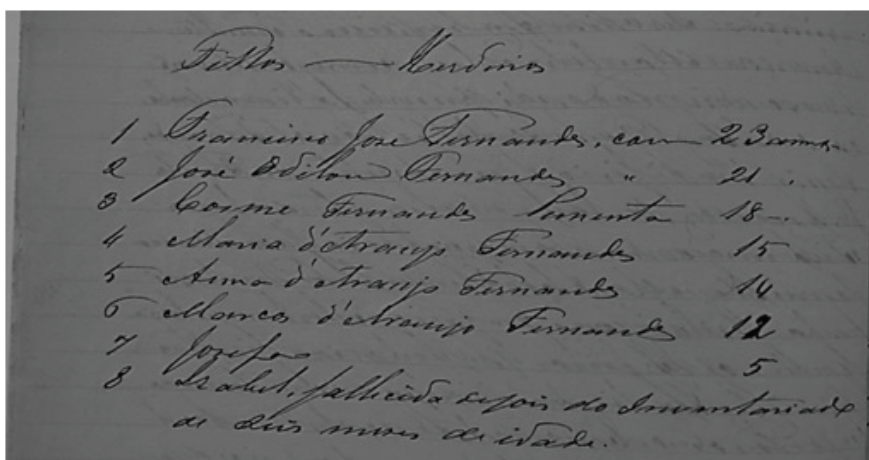 Filhos — Herdeiros
1 Francisco José Fernandes, com 23 annos
2 José Odilon Fernandes " 21 "
3 Cosme Fernandes Pimenta 18 "
4 Maria d'Araujo Fernandes 15
5 Anna d'Araujo Fernandes 14
6 Marcos d'Araujo Fernandes 12
7 Josefa 5
8 Izabel, fallecida depois do Inventariado
de dois mezes de idade.